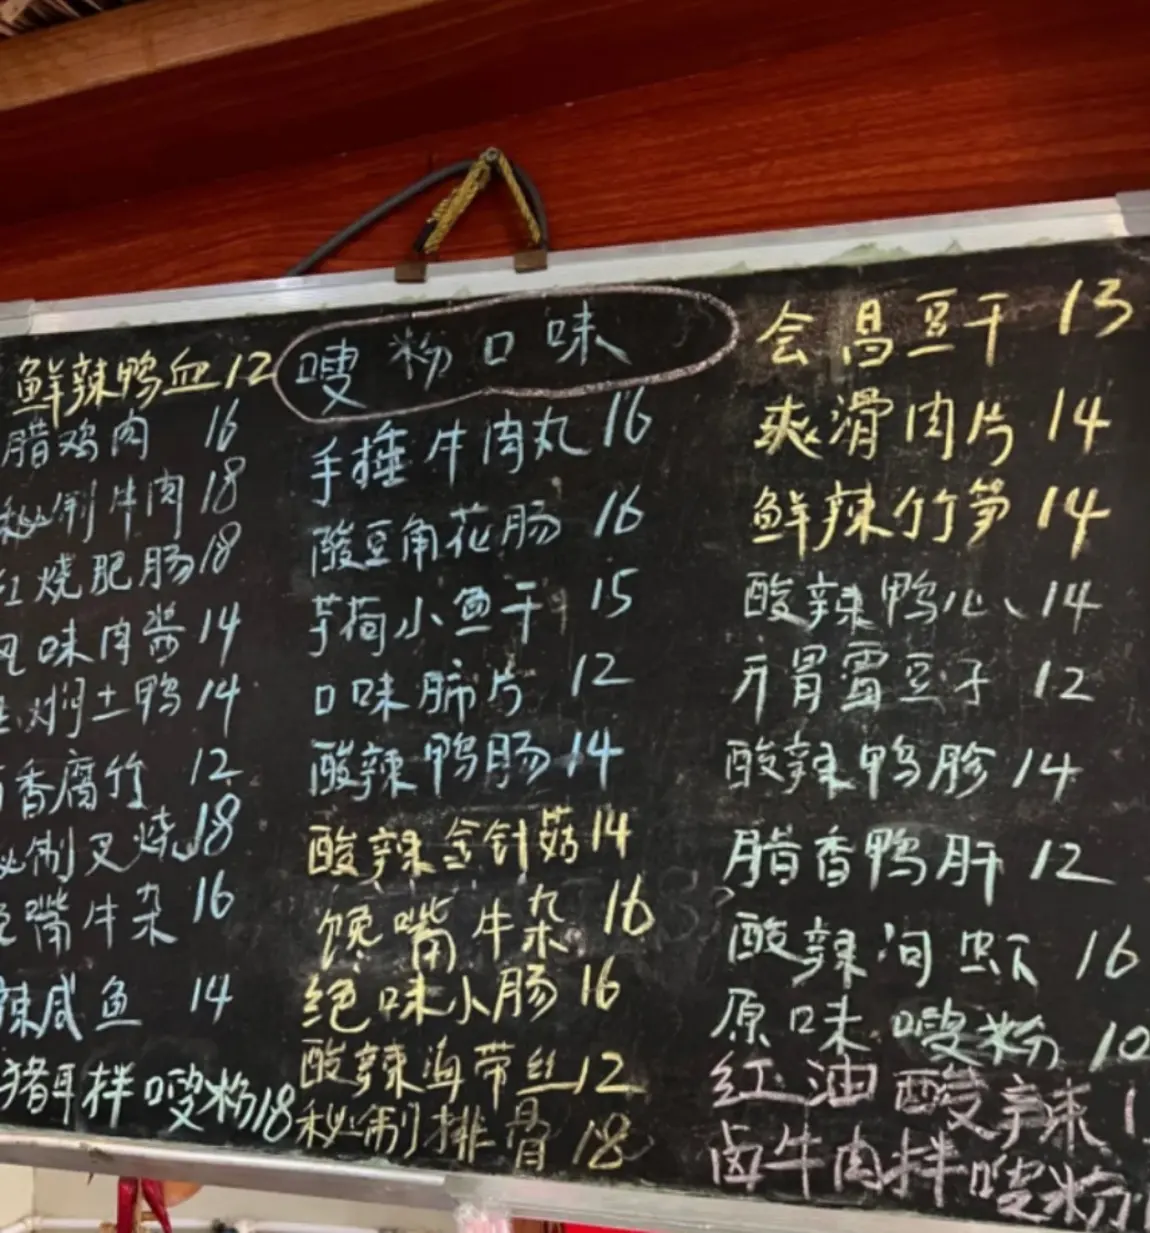 嗖粉口味
鲜辣鸭血 12
腊鸡肉 16
秘制牛肉 18
红烧肥肠 18
风味肉酱 14
焖土鸭 14
香腐竹 12
秘制叉烧 18
嘴牛杂 16
辣咸鱼 14
猪耳拌嗖粉 18
手捶牛肉丸 16
酸豆角花肠 16
芋荷小鱼干 15
口味肺片 12
酸辣鸭肠 14
酸辣金针菇 14
馋嘴牛杂 16
绝味小肠 16
酸辣海带丝 12
秘制排骨 18
会昌豆干 13
爽滑肉片 14
鲜辣竹笋 14
酸辣鸭心 14
开胃雪豆子 12
酸辣鸭胗 14
腊香鸭肝 12
酸辣河虾 16
原味嗖粉 10
红油酸辣 1
卤牛肉拌嗖粉